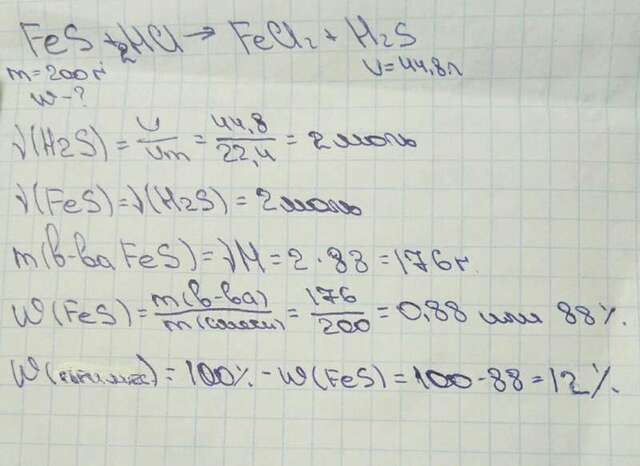 FeS + 2HCl → FeCl2 + H2S
m=200г V=44,8л
w-?
ν(H2S) = V/Vm = 44,8/22,4 = 2 моль
ν(FeS) = ν(H2S) = 2 моль
m(в-ва FeS) = νM = 2 · 88 = 176г.
W(FeS) = m(в-ва)/m(смеси) = 176/200 = 0,88 или 88%.
W(примес) = 100% - W(FeS) = 100-88 = 12%.